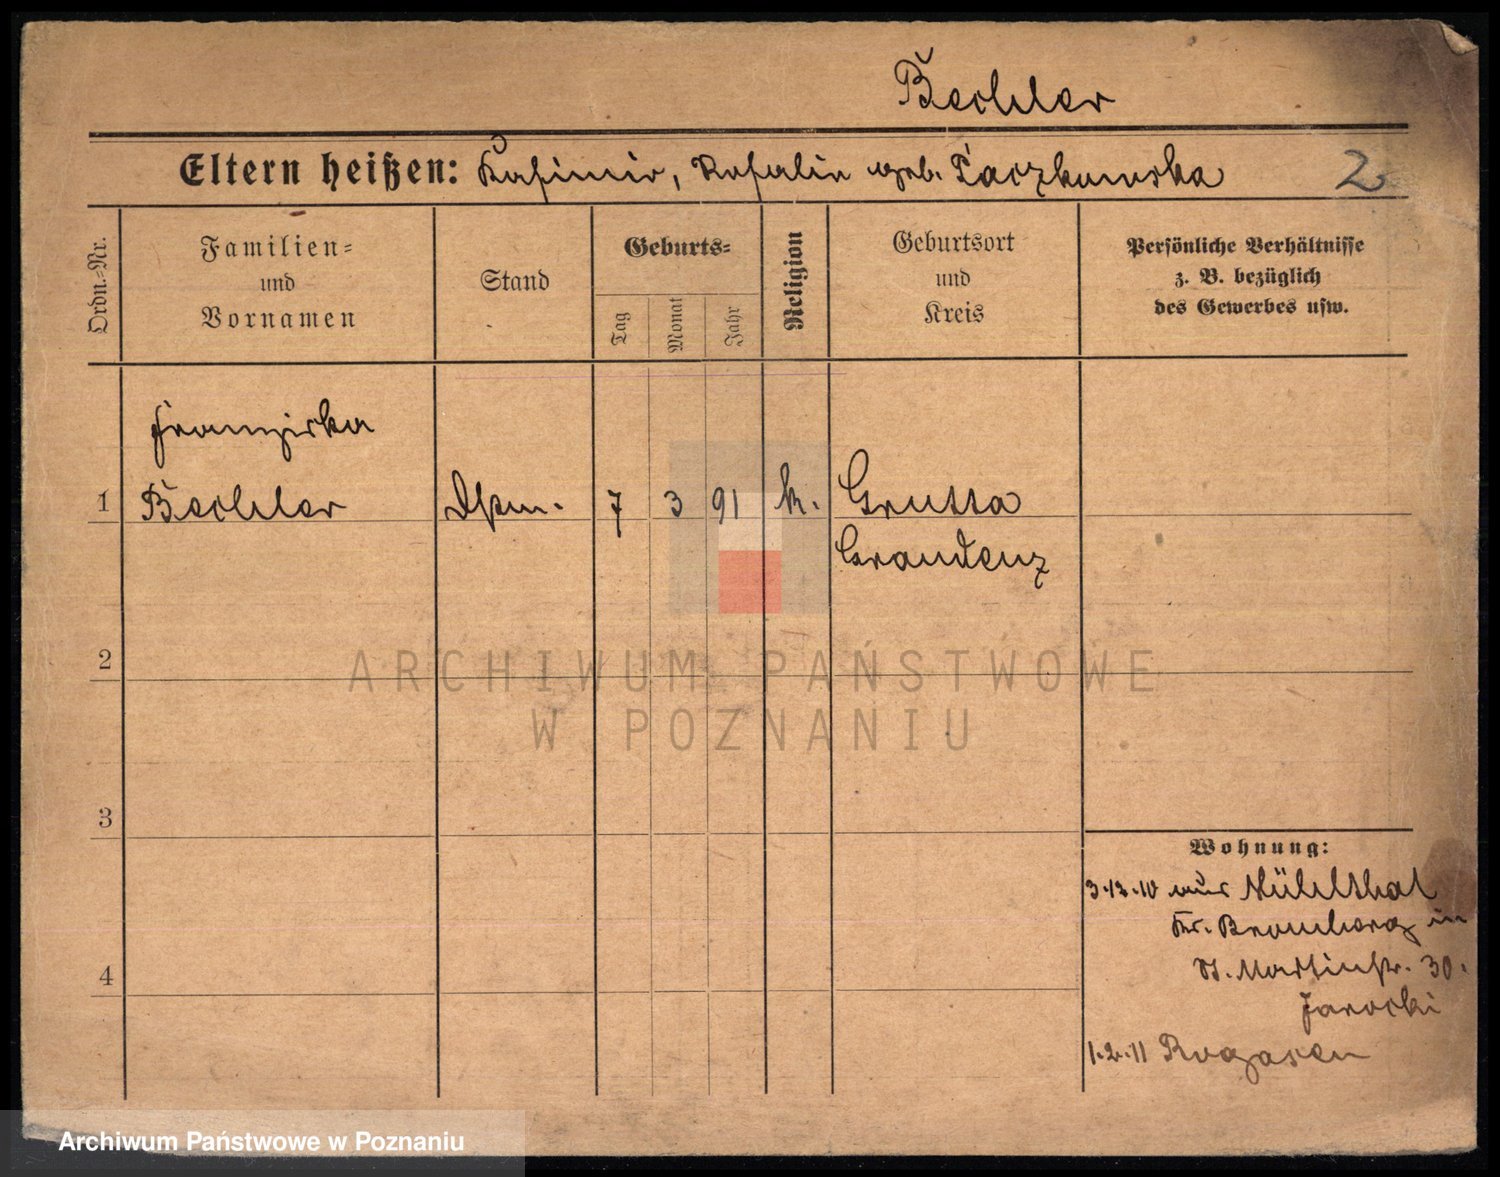 Bechler
Eltern heißen: Kasimir, Rosalie geb. Taczkowska
2
Ordn.-Nr.
Familien-
und
Vornamen
Stand
Geburts-
Tag
Monat
Jahr
Religion
Geburtsort
und
Kreis
Persönliche Verhältnisse
z. B. bezüglich
des Gewerbes usw.
Franziska
1 Bechler 7 3 91 k. Grutta
Graudenz
2
3
4
Wohnung:
3.12.10 aus Mühlthal
Kr. Bromberg in
St. Martinstr. 30.
Jarocki
1.2.11 Rogasen
ARCHIWUM PAŃSTWOWE
W POZNANIU
Archiwum Państwowe w Poznaniu